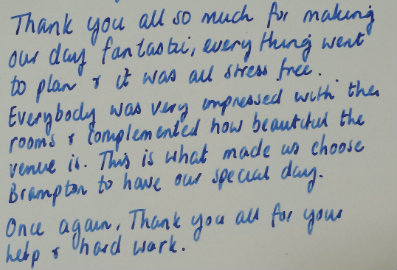 Thank you all so much for making
our day fantastic, every thing went
to plan & it was all stress free.
Everybody was very impressed with the
rooms & complemented how beautiful the
venue is. This is what made us choose
Brampton to have our special day.
Once again, Thank you all for your
help & hard work.